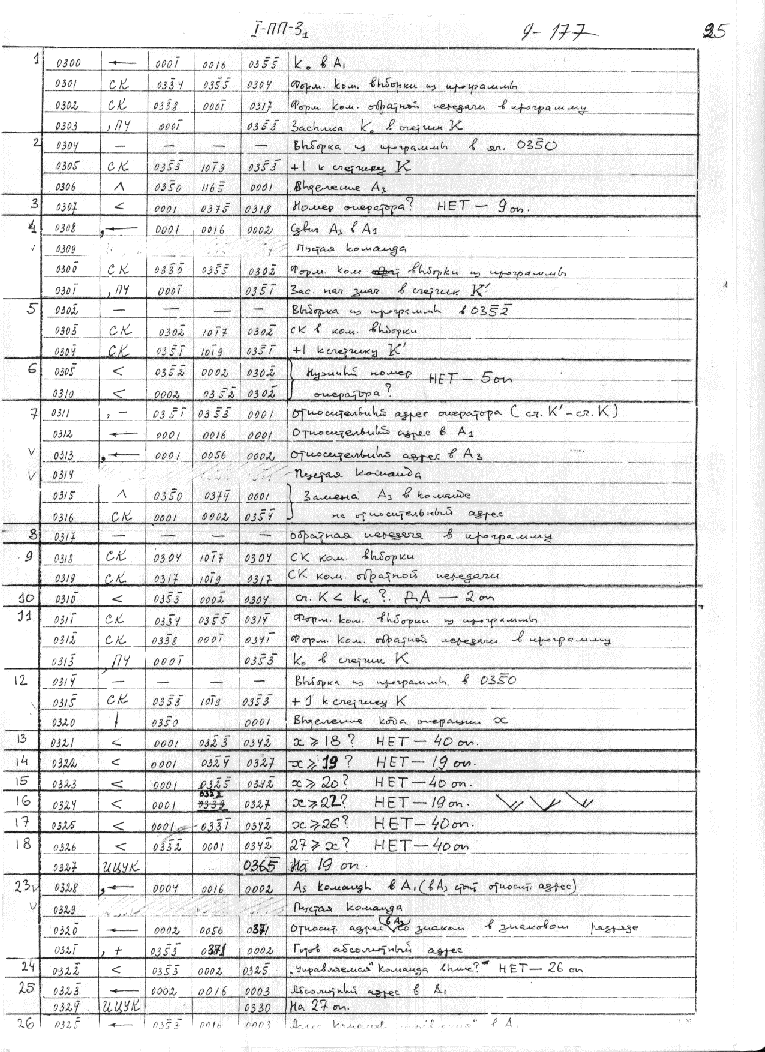 I-ПП-3₁ 9-177 25
1 0300 ← 0001̄ 0016 035̄5̄ K₀ в A₁
0301 СК 033̄4 035̄5̄ 0304 Форм. ком. выборки из программы
0302 СК 0338 0001̄ 0317 Форм ком. обратной передачи в программу
0303 ,ПУ 0001̄ 035̄3̄ Засылка K₀ в счетчик K
2 0304 — — — — Выборка из программы в яч. 035̄0
0305 СК 035̄3̄ 101̄9 035̄3̄ +1 к счетчику K
0306 ∧ 035̄0 1165̄ 0001 Выделение A₃
3 0307 < 0001 0375̄ 0318 Номер оператора? НЕТ — 9 оп.
4 0308 ,← 0001 0016 0002 Сдвиг A₃ в A₁
0309 Пустая команда
030̄0 СК 033̄0 035̄5̄ 030̄2 Форм. ком выборки из программы
030̄1 ,ПУ 0001̄ 035̄1 Зас. нач знач. в счетчик K'
5 030̄2 — — — — Выборка из программы в 035̄2
030̄3 СК 030̄2 101̄7 030̄2 СК в ком. выборки
030̄4 СК 035̄1 101̄9 035̄1 +1 к счетчику K'
6 030̄5 < 035̄2 0002 030̄2 Нужный номер НЕТ — 5 оп
0310 < 0002 035̄2 030̄2 оператора?
7 0311 ,— 035̄1 035̄3̄ 0001 Относительный адрес оператора (сч. K' – сч. K)
0312 ← 0001 0016 0001 Относительный адрес в A₁
v 0313 ,← 0001 0056 0002 Относительный адрес в A₃
v 0314 Пустая команда
0315 ∧ 035̄0 0374̄ 0001 Замена A₃ в команде
0316 СК 0001 0002 035̄4 на относительный адрес
8 0317 — — — — обратная передача в программу
9 0318 СК 0304 101̄7 0304 СК ком. выборки
0319 СК 0317 101̄9 0317 СК ком. обратной передачи
10 031̄0 < 035̄3 0002̄ 0304 сч. K < kₖ? ДА — 2 оп
11 031̄1 СК 033̄4 035̄5̄ 031̄4 Форм. ком. выборки из программы
031̄2 СК 0338 0001̄ 0341̄ Форм. ком. обратной передачи в программу
031̄3 ,ПУ 0001̄ 035̄3̄ K₀ в счетчик K
12 031̄4 — — — — Выборка из программы в 035̄0
031̄5 СК 035̄3̄ 101̄9 035̄3̄ +1 к счетчику K
0320 035̄0 0001 Выделение кода операции x
13 0321 < 0001 032̄3 034̄2 x ⩾ 18? НЕТ — 40 оп.
14 0322 < 0001 032̄4 0327 x ⩾ 19? НЕТ — 19 оп.
15 0323 < 0001 032̄5 034̄2 x ⩾ 20? НЕТ — 40 оп.
16 0324 < 0001 0327 x ⩾ 22? НЕТ — 19 оп.
17 0325 < 0001 033̄1 034̄2 x ⩾ 26? НЕТ — 40 оп.
18 0326 < 033̄2 0001 034̄2 27 ⩾ x? НЕТ — 40 оп.
0327 ИЦУК 0365 На 19 оп.
23 v 0328 ,← 0004 0016 0002 A₃ команды в A₁ (в A₃ стоит относит. адрес)
v 0329 Пустая команда
032̄0 ← 0002 0056 0371 Относит. адрес в A₃ со знаком в знаковом разряде
032̄1 ,+ 035̄3̄ 0371 0002 Готов абсолютный адрес
24 032̄2 < 035̄3 0002 032̄5 „Управляемая“ команда выше? НЕТ — 26 оп
25 032̄3 ← 0002 0016 0003 Абсолютный адрес в A₁
032̄4 ИЦУК 0330 На 27 оп.
26 032̄5 ← 035̄3 0016 0003